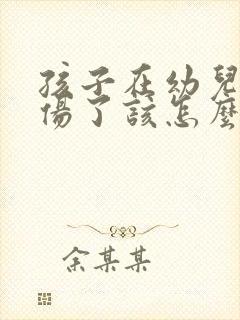 孩子在幼兒
傷了該怎麼
余某某